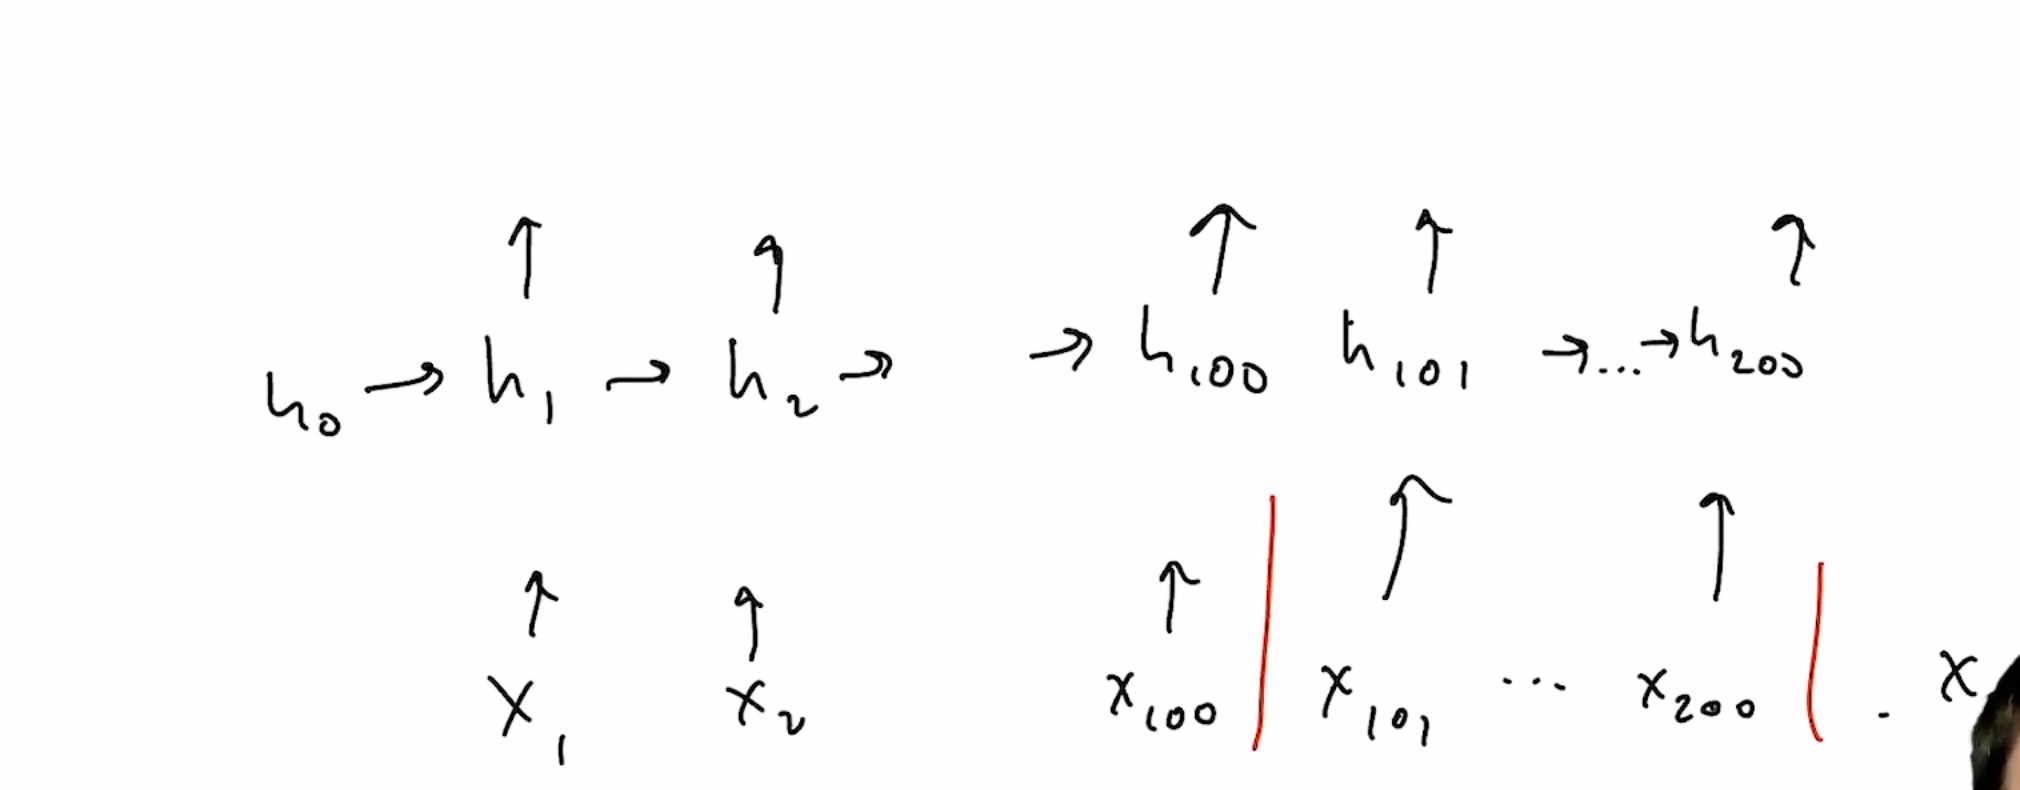 h₀ → h₁ → h₂ → → h₁₀₀ h₁₀₁ → ... → h₂₀₀
x₁ x₂ x₁₀₀ x₁₀₁ ... x₂₀₀ . x